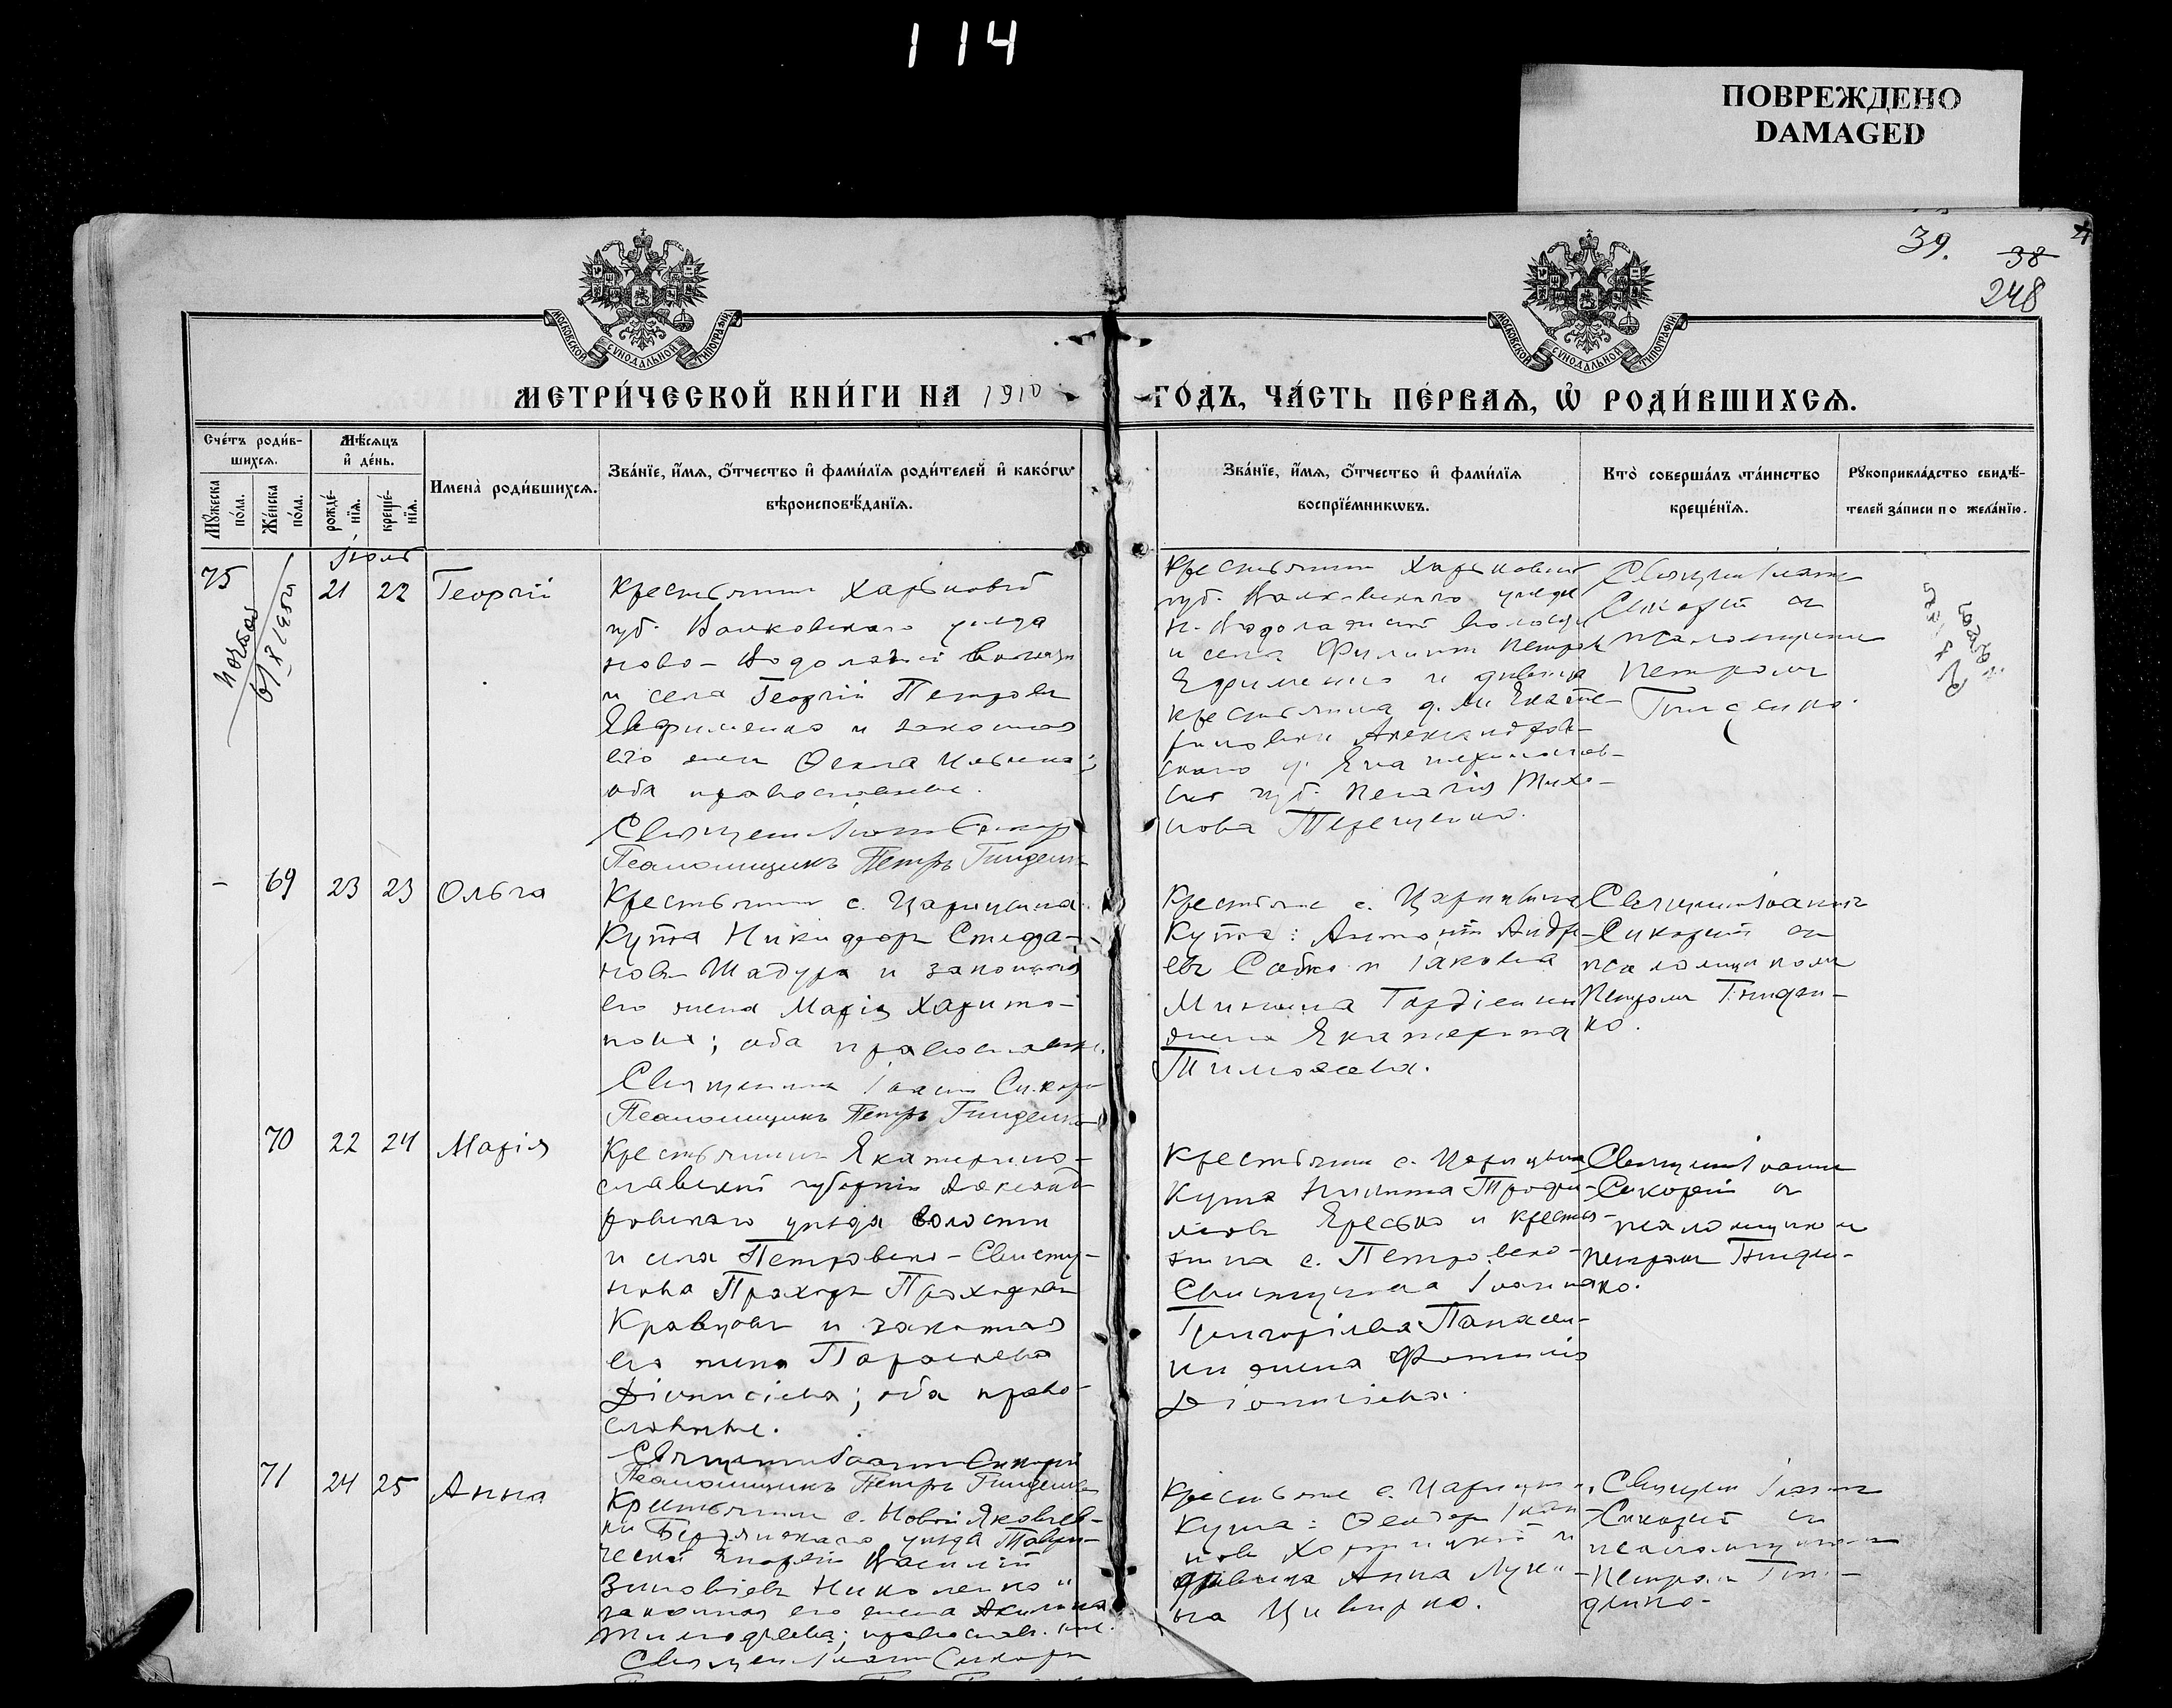 114
ПОВРЕЖДЕНО
DAMAGED
39.
38
248
МОСКОВСКОЙ СѴНОДАЛЬНОЙ ТИПОГРАФІИ
МОСКОВСКОЙ СѴНОДАЛЬНОЙ ТИПОГРАФІИ
МЕТРИ́ЧЕСКОЙ КНИ́ГИ НА 1910
ГО́ДЪ, ЧА́СТЬ ПЕ́РВАѦ, Ѡ҆ РОДИ́ВШИХСѦ.
Сче́тъ роди́в-
шихсѧ.
Мѣ́сѧцъ
и҆ де́нь.
Мꙋ́жеска
по́ла.
Же́нска
по́ла.
рожде́-
нїѧ.
креще́-
нїѧ.
Имена̀ роди́вшихсѧ.
Зва́нїе, и҆́мѧ, ѻ҆́тчество и҆ фами́лїѧ роди́телей и҆ како́гѡ
вѣроисповѣ́данїѧ.
Зва́нїе, и҆́мѧ, ѻ҆́тчество и҆ фами́лїѧ
воспрїе́мникѡвъ.
Кто̀ соверша́лъ та́инство
креще́нїѧ.
Рꙋкоприкла́дство свидѣ́-
телей за́писи по жела́нїю.
Іюль
75 21 22 Георгій
Крестьянинъ Харьковской
губ. Валковскаго уѣзда
Ново-Водолажской волости
и села Георгій Петровъ
Евфименко и законная
его жена Ѳекла Ильина;
оба православные.
Священ. Іоаннъ Сикорскій
Псаломщикъ Петръ Гниденко
Крестьянинъ Харьковской
губ. Валковскаго уѣзда
Н-Водолажской волости
и села Филиппъ Петровъ
Ефименко и дѣвица
Александров-
скаго у. Екатеринослав-
ской губ. Пелагія Тихо-
нова Терещенко.
Священ. Іоаннъ
Сикорскій съ
псаломщикомъ
Петромъ
Гниденко.
- 69 23 23 Ольга
Крестьянинъ с. Царицына
Кута Никифоръ Стефа-
новъ Шадура и законная
его жена Марія Харито-
нова; оба православные.
Священникъ Іоаннъ Сикорскій
Псаломщикъ Петръ Гниденко
Крестьяне с. Царицына
Кута: Антоній Андре-
евъ Собко и Іакова
Минина Гордіенки
жена Екатерина
Тимофеева.
Священ. Іоаннъ
Сикорскій съ
псаломщикомъ
Петромъ Гниден-
ко.
70 22 24 Марія
Крестьянинъ Екатерино-
славской губерніи Александ-
ровскаго уѣзда волости
и села Петровско-Свисту-
нова Прохоръ Прохоровъ
Кравцовъ и законная
его жена Параскева
Діонисіева; оба право-
славные.
Священникъ Іоаннъ Сикорскій
Псаломщикъ Петръ Гниденко
Крестьянинъ с. Царицына
Кута Никита Трофи-
мовъ Яресько и кресть-
янина с. Петровско-
Свистунова Іоанна
Григоріева Панасен-
ки жена
Діонисіева.
Священ. Іоаннъ
Сикорскій съ
псаломщикомъ
Петромъ Гниден-
ко.
71 24 25 Анна
Крестьянинъ с. Новой Яковлев-
ки Бердянскаго уѣзда Таври-
ческой Василій
Зиновіевъ Николенко и
законная его жена Акилина
Тимофеева; православные.
Священ. Іоаннъ Сикорскій
Крестьяне с. Царицына
Кута: Ѳеодоръ Іоан-
новъ и
дѣвица Анна Луки-
на Цивирко.
Священ. Іоаннъ
Сикорскій съ
псаломщикомъ
Петромъ Гни-
денко.